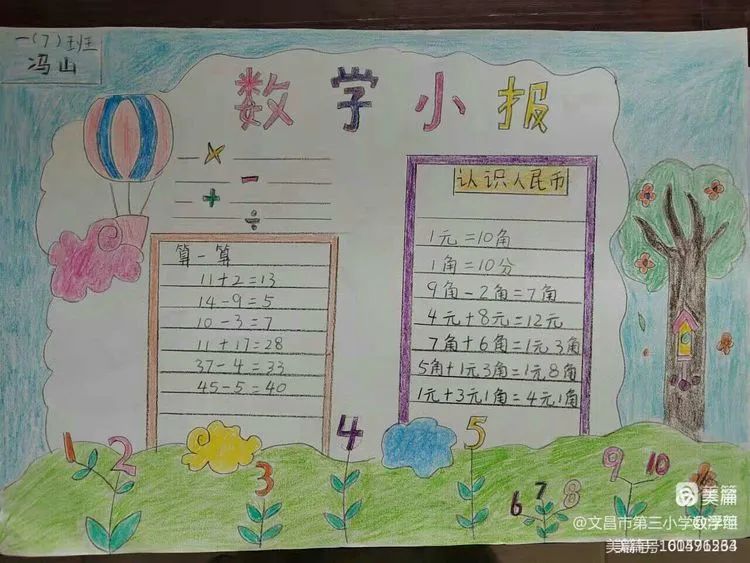 一(7)班
冯山
数学小报
×
−
+
÷
算一算
11+2=13
14-9=5
10-3=7
11+17=28
37-4=33
45-5=40
认识人民币
1元=10角
1角=10分
9角-2角=7角
4元+8元=12元
7角+6角=1元3角
5角+1元3角=1元8角
1元+3元1角=4元1角
1 2 3 4 5 6 7 8 9 10
美篇
@文昌市第三小学数学组
美篇号